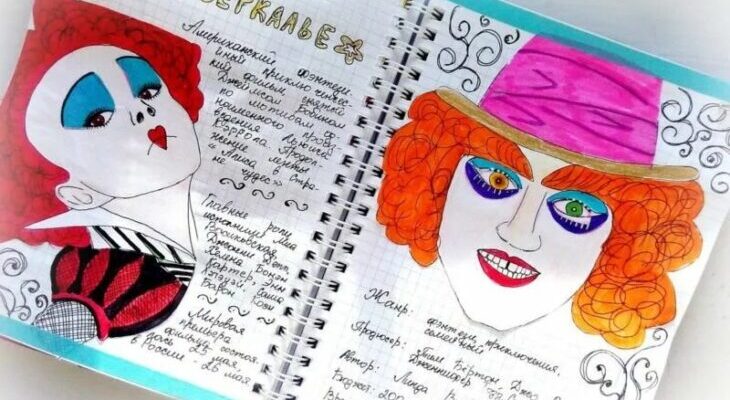 ЗЕРКАЛЬЕ
Американский фэнтези
ный приключенчес
кий фильм, снятый
Джеймсом Бобином
по мотивам од
ноимённого произ
ведения Льюиса
Кэррола. Продол
жение ленты
«Алиса в Стра
не чудес»
Главные роли
исполнили Миа
Васиковская,
Джонни Депп,
Хелена Бонэм
Картер, Энн
Хэтэуэй, Саша
Барон Коэн
Мировая
премьера
фильма состоя
лась 25 мая,
в России - 26 мая
Жанр: фэнтези, приключения,
семейный
Продюсер: Тим Бёртон, Джо
Дженнифер
Автор: Линда
Бюджет: 200